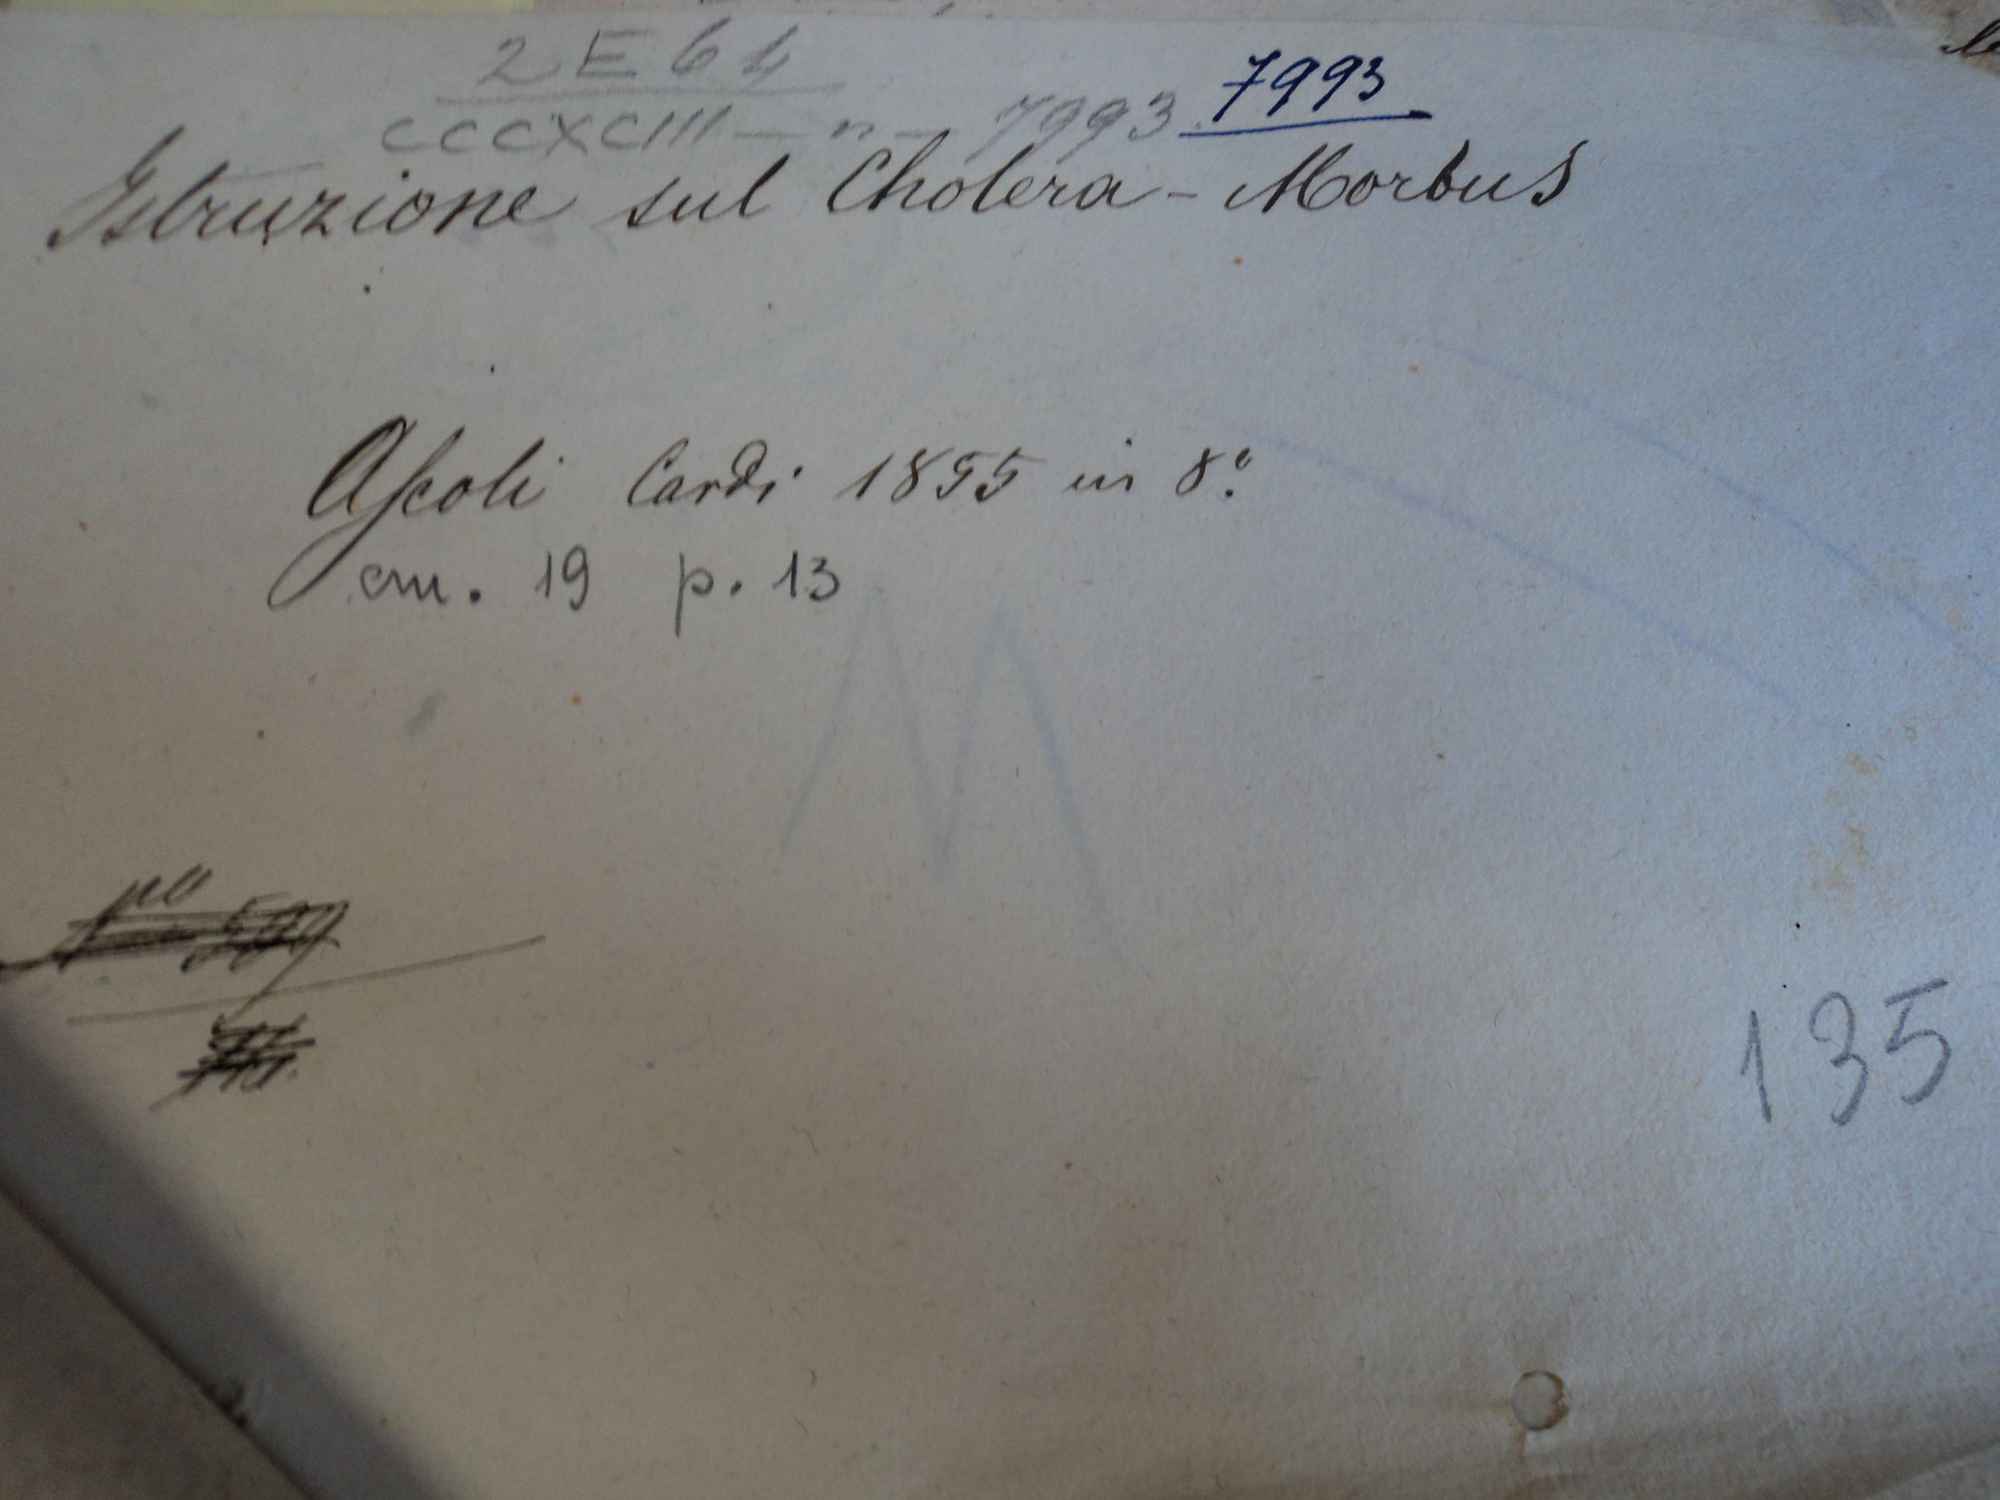 2 E 64
CCCXCIII — n — 7993 7993
Istruzione sul Cholera-Morbus
Ascoli Cardi 1855 in 8°.
cm. 19 p. 13
135